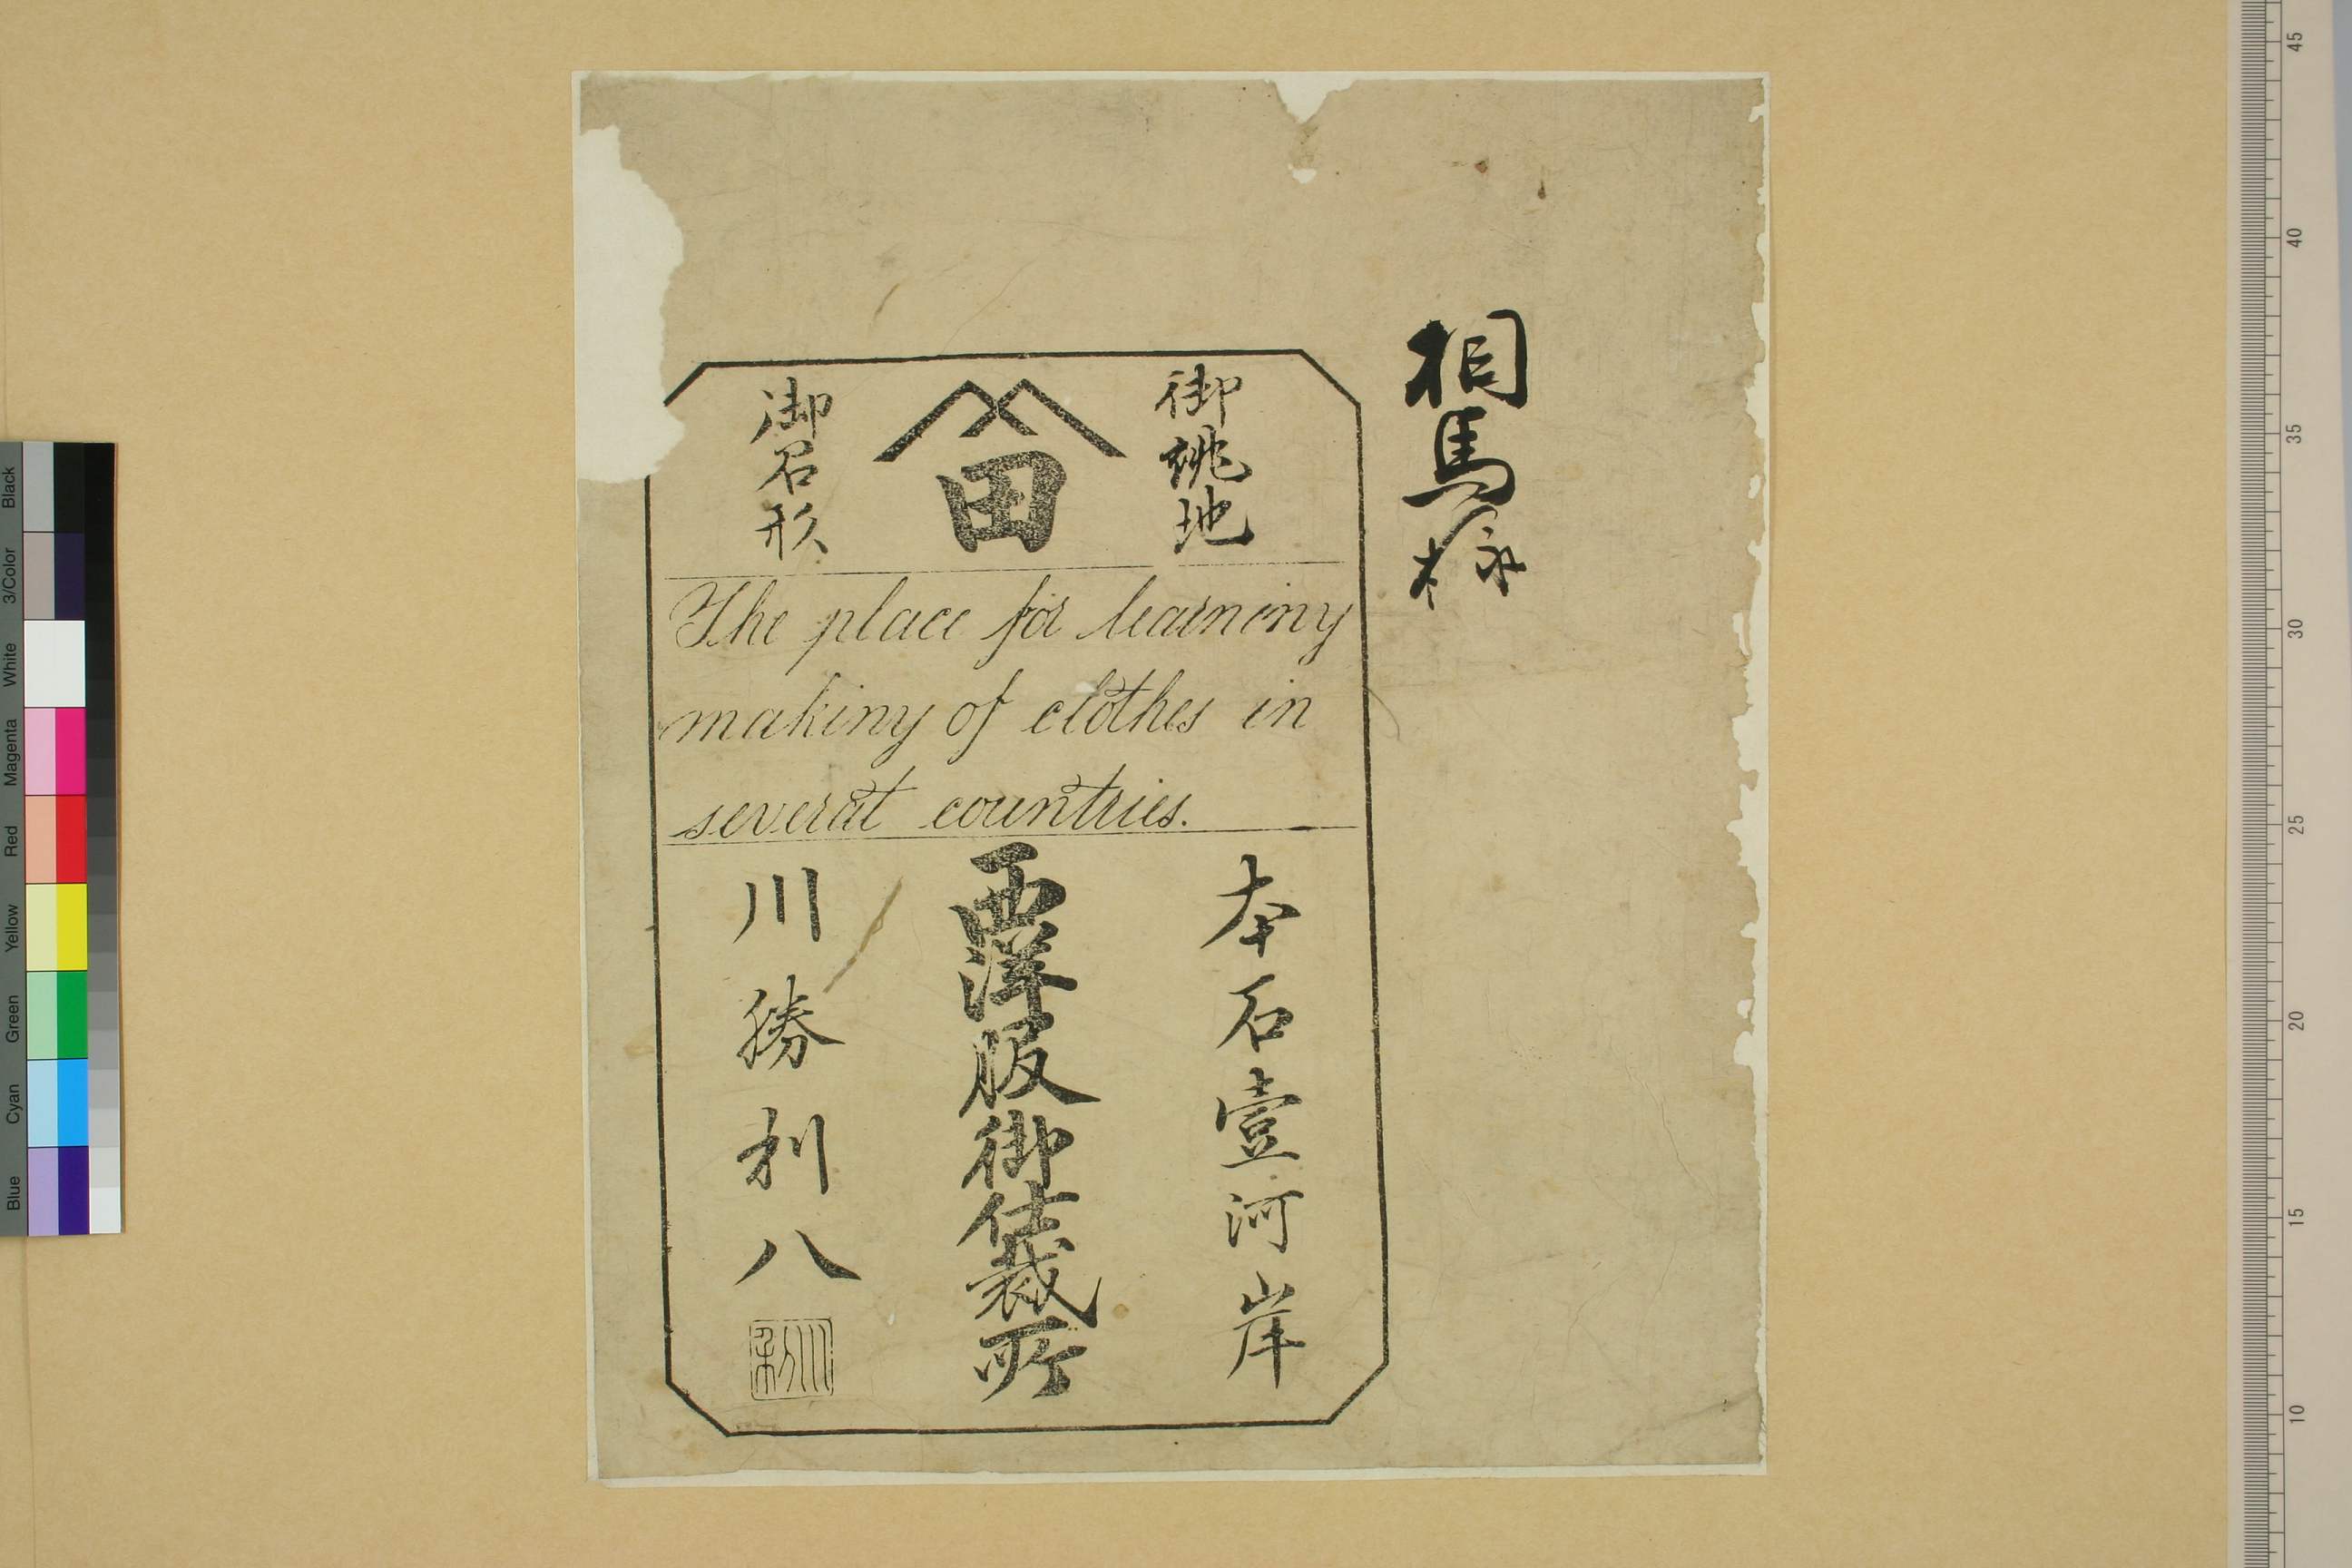 相馬様
御誂地
田
御召形
The place for learniny
makiny of clothes in
severat countries.
本石壹河岸
西洋服御仕裁所
川勝利八
川利
Black
3/Color
White
Magenta
Red
Yellow
Green
Cyan
Blue
45
40
35
30
25
20
15
10